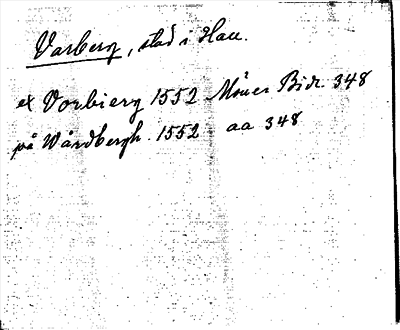 Varberg, stad i Hall.
ex Vorbierg 1552 Mörner Bidr. 348
på Wårdbergh. 1552 aa 348